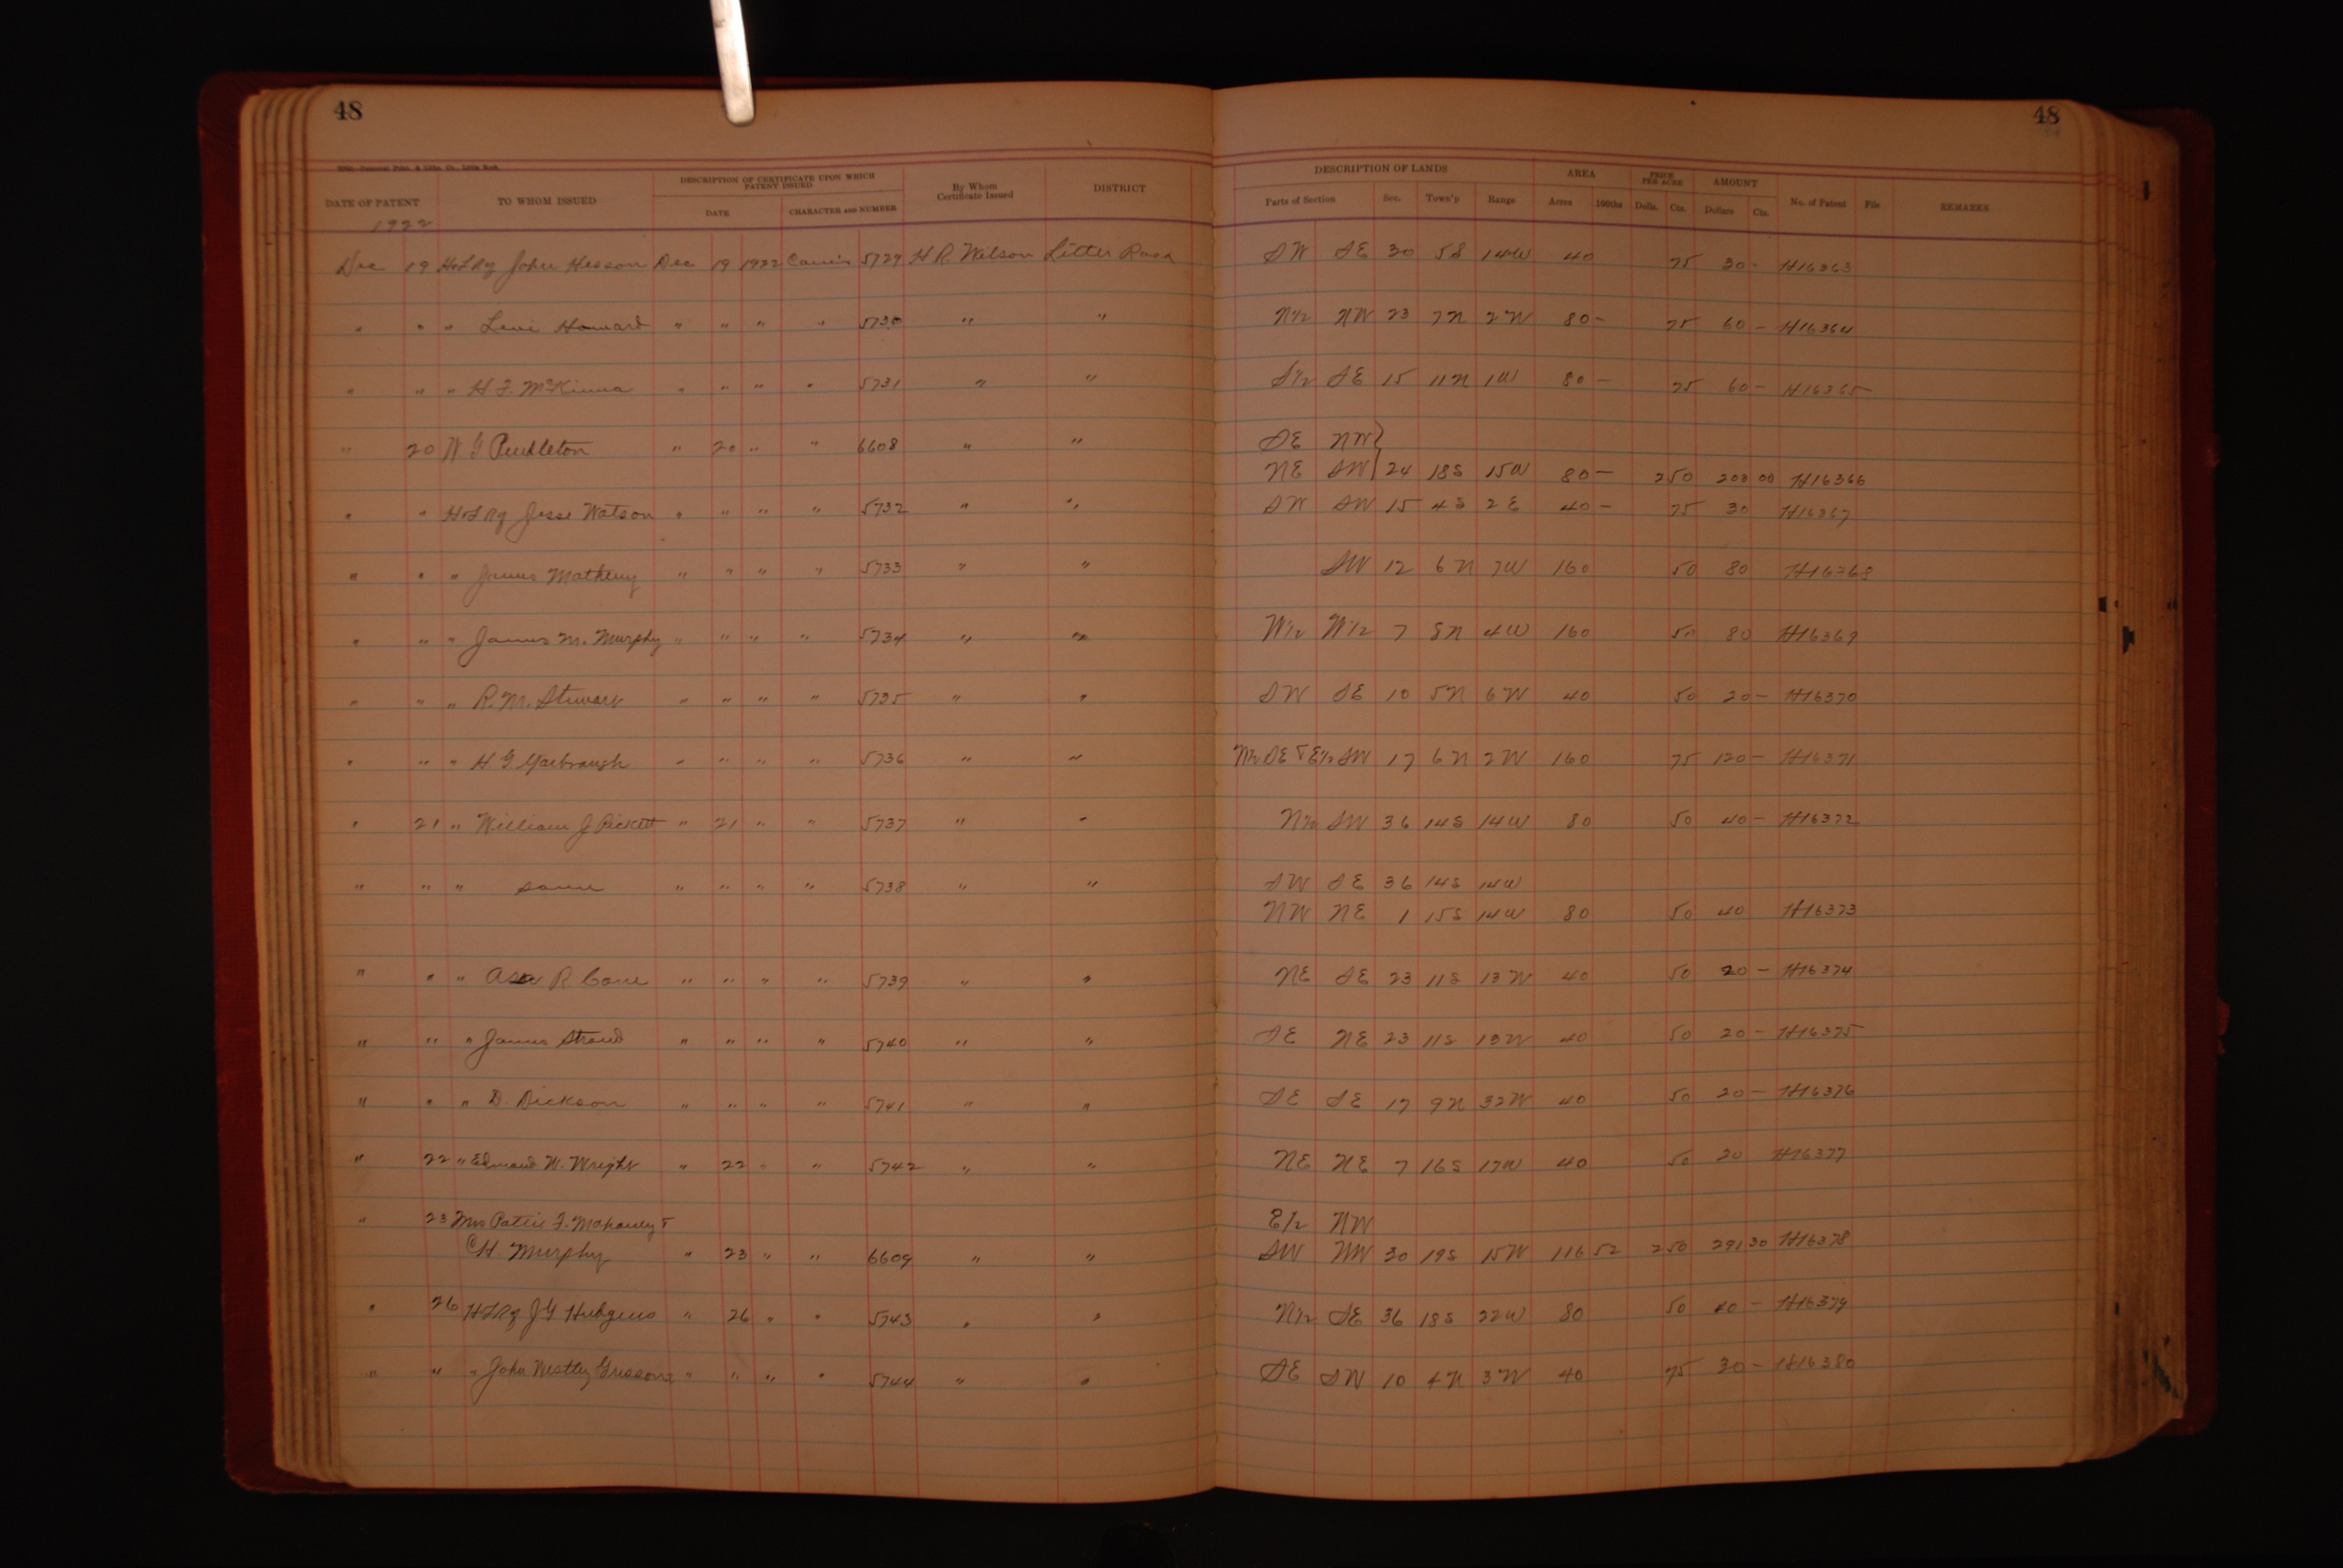 48 48
DATE OF PATENT TO WHOM ISSUED DESCRIPTION OF CERTIFICATE UPON WHICH PATENT ISSUED DATE CHARACTER AND NUMBER By Whom Certificate Issued DISTRICT DESCRIPTION OF LANDS Parts of Section Sec. Town'p Range AREA Acres 100ths PRICE PER ACRE Dolls. Cts. AMOUNT Dollars Cts. No. of Patent File REMARKS
1922
Dec 19 John Hesson Dec 19 1922 5729 H R. Wilson SW SE 30 5S 14W 40 75 30 - H16363
" " " Levi Howard " " " " 5730 " " N1/2 NW 23 7N 2W 80 - 75 60 - H16364
" " " H F. McKinna " " " " 5731 " " S1/2 SE 15 11N 1W 80 - 75 60 - H16365
" 20 W. G Pendleton " 20 " " 6608 " " SE NW }
NE SW 24 18S 15W 80 - 2 50 203 00 H16366
" " Jesse Watson " " " " 5732 " " SW SW 15 4S 2E 40 - 75 30 H16367
" " " James Matheny " " " " 5733 " " SW 12 6N 7W 160 50 80 H16368
" " " James M. Murphy " " " " 5734 " " W1/2 W1/2 7 8N 4W 160 50 80 H16369
" " " R. M. Stewart " " " " 5735 " " SW SE 10 5N 6W 40 50 20 - H16370
" " " H. G. Yarbrough " " " " 5736 " " SE & E1/2 SW 17 6N 2W 160 75 120 - H16371
" 21 " William J Pickett " 21 " " 5737 " " N1/2 SW 36 14S 14W 80 50 40 - H16372
" " " same " " " " 5738 " " SW SE 36 14S 14W
NW NE 1 15S 14W 80 50 40 H16373
" " " Asa R. Cone " " " " 5739 " " NE SE 23 11S 13W 40 50 20 - H16374
" " " James Stroud " " " " 5740 " " SE NE 23 11S 13W 40 50 20 - H16375
" " " D. Dickson " " " " 5741 " " SE SE 17 9N 32W 40 50 20 - H16376
" 22 " Edmond W. Wright " 22 " " 5742 " " NE NE 7 16S 17W 40 50 20 H16377
" 23 Mrs F. & E1/2 NW
C H. Murphy " 23 " " 6609 " " SW NW 30 19S 15W 116 52 2 50 291 30 H16378
" 26 J G Hudgens " 26 " " 5743 " " N1/2 SE 36 18S 22W 80 50 40 - H16379
" " " John Westley " " " " 5744 " " SE SW 10 4N 3W 40 75 30 - H16380